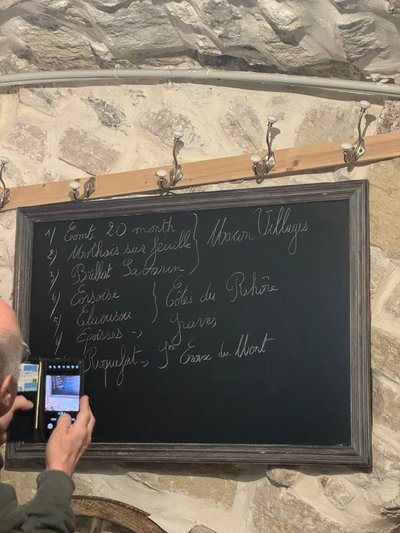 1) Comté 20 month
2) Mothais sur feuille
3) Brillat Savarin
Macon Villages
4)
5)
Côtes du Rhône
6) Epoisses → Graves
Roquefort → Ste Croix du Mont